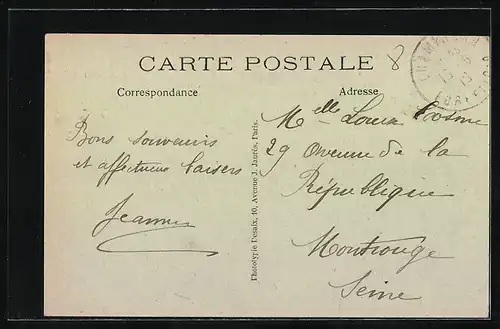 CARTE POSTALE
8
Correspondance
Adresse
Bons souvenirs
et affectueux baisers
Jeanne
Phototypie Desaix, 40, Avenue J. Jaurès, Paris.
Melle Cosme
29 Avenue de la
République
Montrouge
Seine